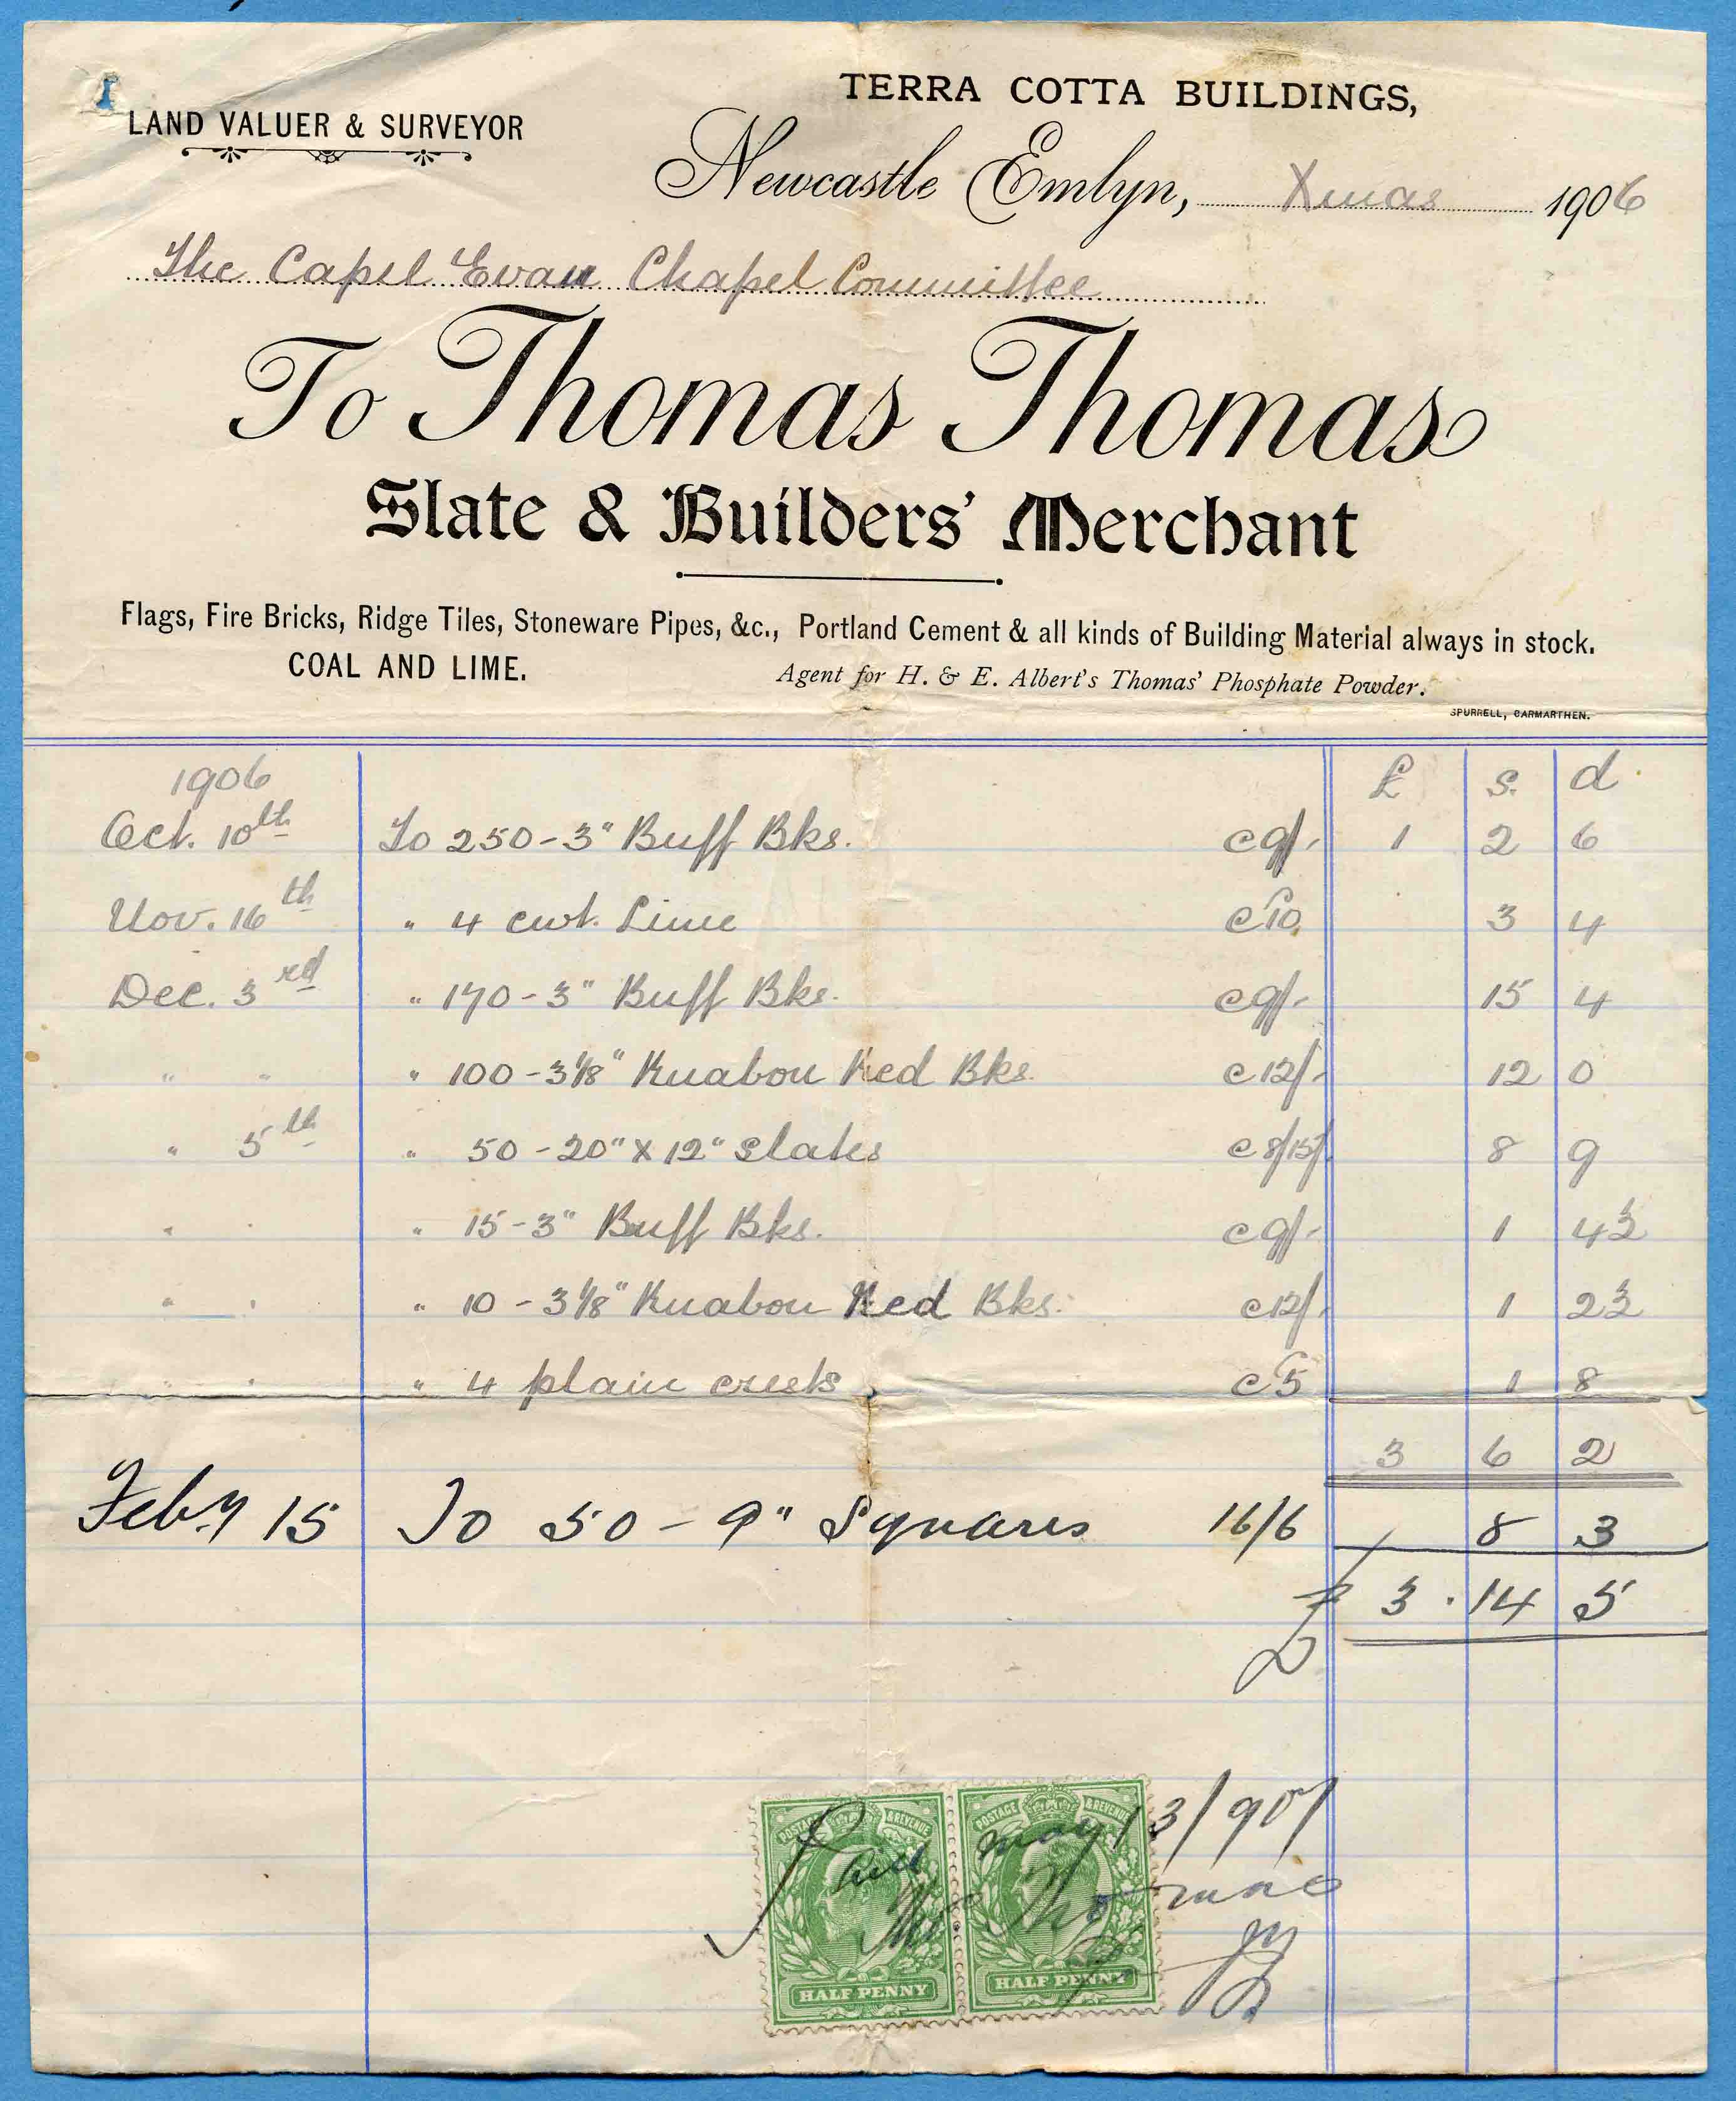 TERRA COTTA BUILDINGS,
LAND VALUER & SURVEYOR
Newcastle Emlyn, Xmas 1906
The Capel Evan Chapel Committee
To Thomas Thomas
Slate & Builders' Merchant
Flags, Fire Bricks, Ridge Tiles, Stoneware Pipes, &c., Portland Cement & all kinds of Building Material always in stock.
COAL AND LIME. Agent for H. & E. Albert's Thomas' Phosphate Powder.
SPURRELL, CARMARTHEN.
1906 £ s. d.
Oct. 10th To 250-3" Buff Bks. c 9/- 1 2 6
Nov. 16th " 4 cwt. Lime c 10 3 4
Dec. 3rd " 170-3" Buff Bks. c 9/- 15 4
" " " 100-3⅛" Ruabon Red Bks. c 12/- 12 0
" 5th " 50-20" x 12" Slates c 8/15/ 8 9
" " " 15-3" Buff Bks. c 9/- 1 4½
" " " 10-3⅛" Ruabon Red Bks. c 12/- 1 2½
" " " 4 plain crests c 5 1 8
3 6 2
Feby 15 To 50-9" Squares 16/6 8 3
£ 3. 14 5
POSTAGE & REVENUE POSTAGE & REVENUE
May 13/907
Thos Thomas
HALF PENNY HALF PENNY